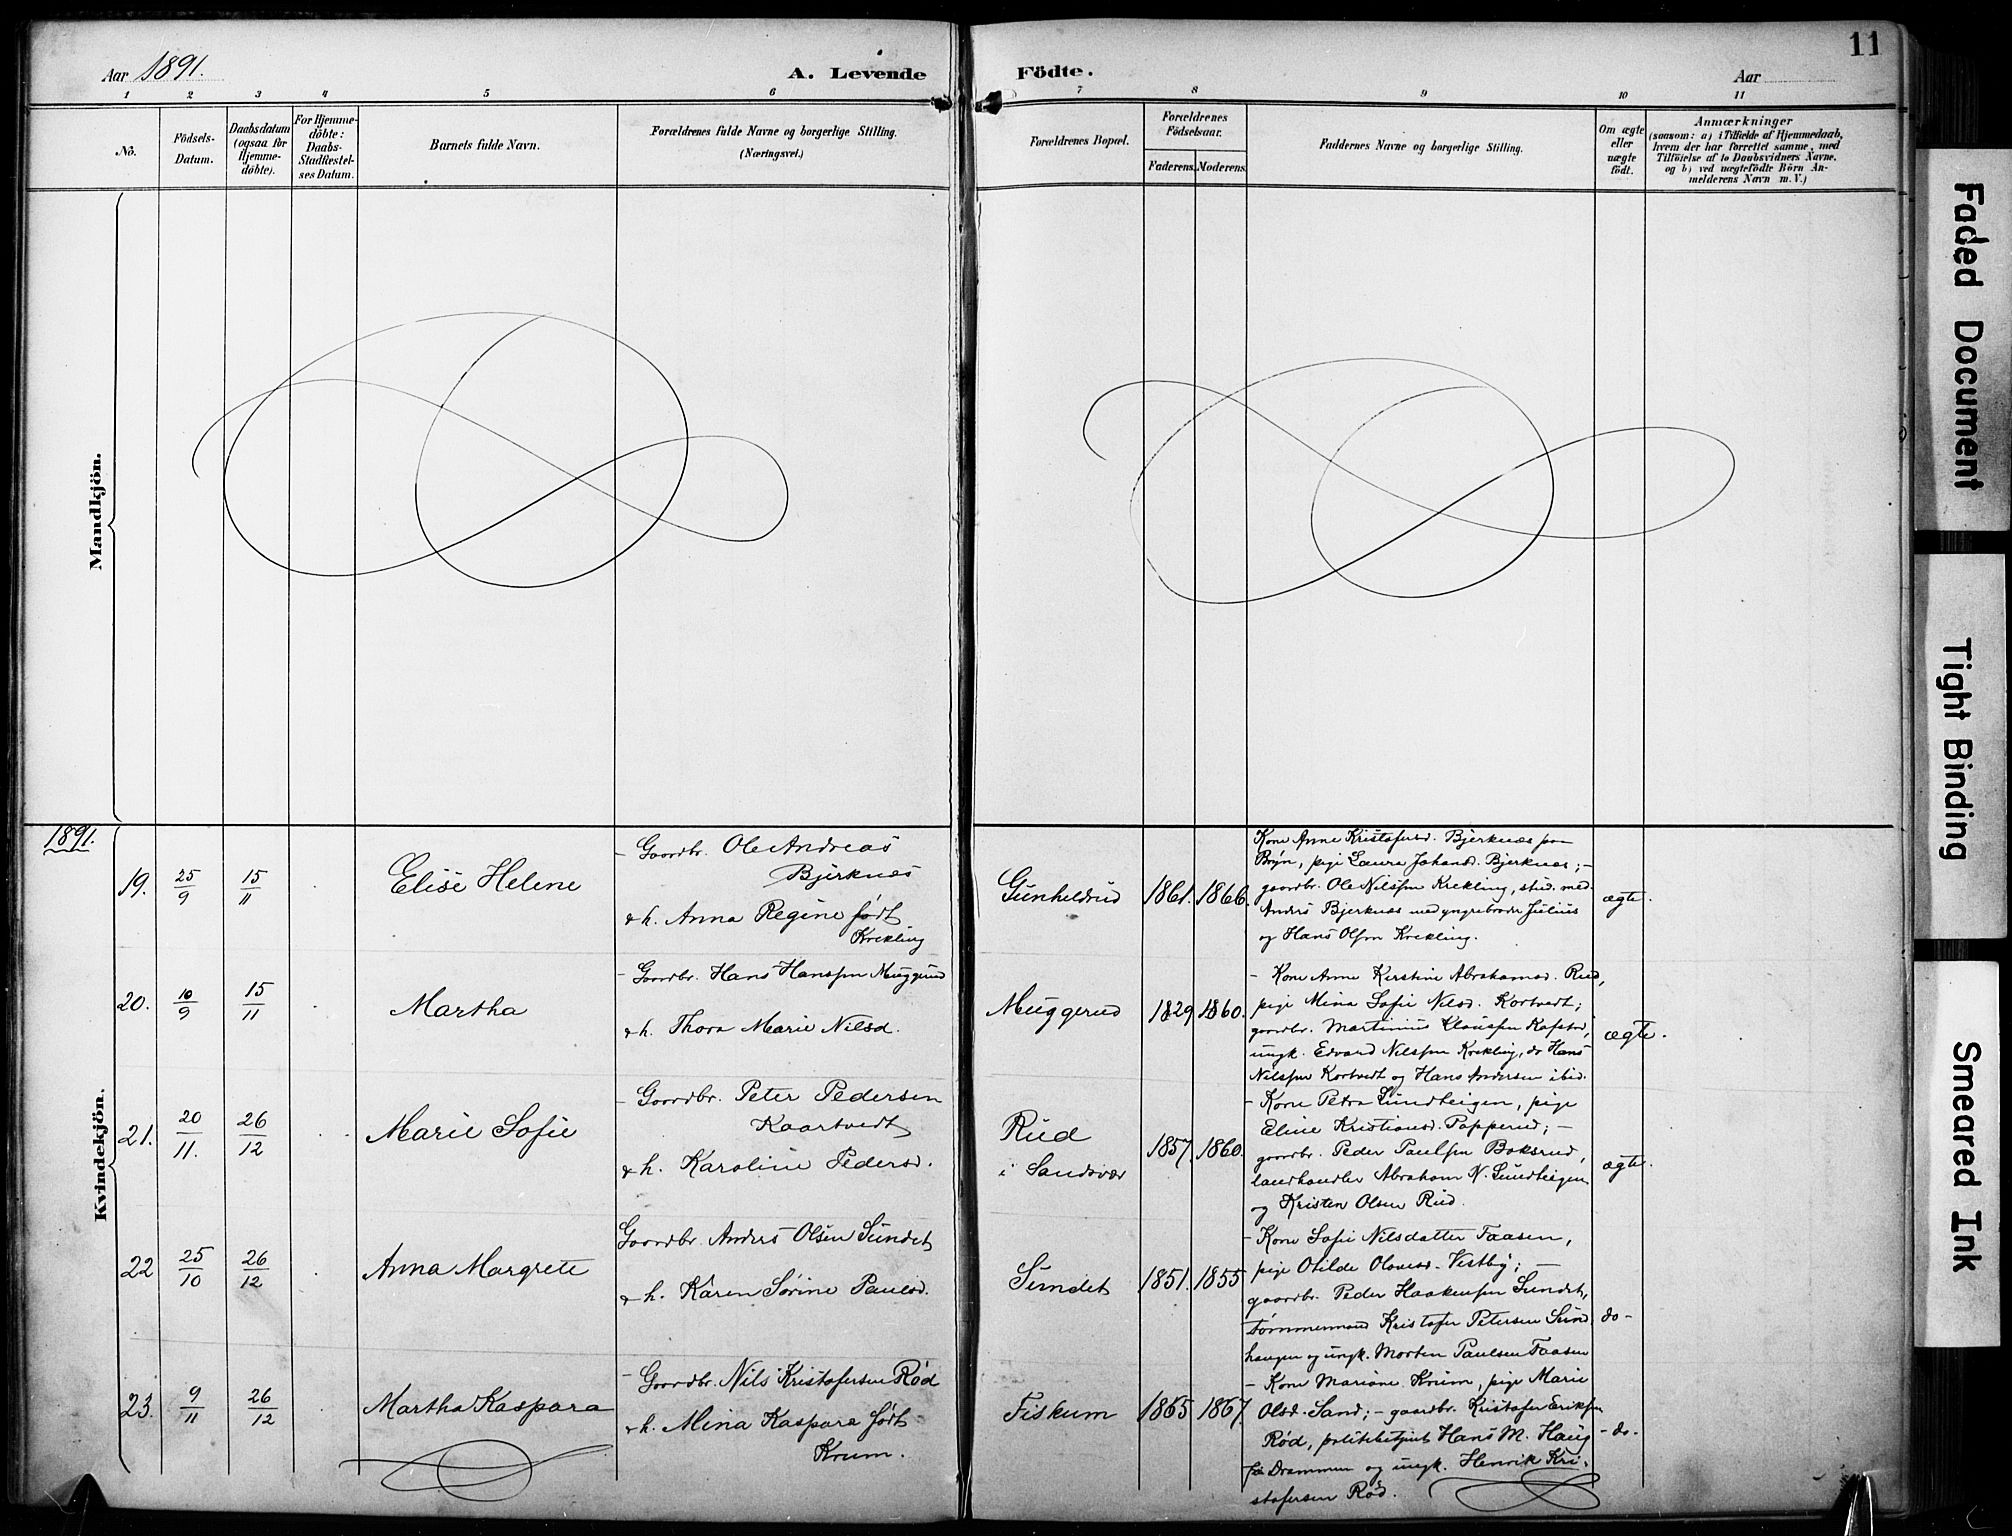 Aar 1891.
A. Levende
Födte.
Aar
11
1 2 3 4 5 6 7 8 9 10 11
No.
Födsels-
Datum.
Daabsdatum
(ogsaa for
Hjemme-
døbte).
For Hjemme-
døbte:
Daabs-
Stadfæstel-
ses Datum.
Barnets fulde Navn.
Forældrenes fulde Navne og borgerlige Stilling.
(Næringsvei.)
Forældrenes Bopæl.
Forældrenes
Födselsaar.
Faderens. Moderens.
Faddernes Navne og borgerlige Stilling.
Om ægte
eller
uægte
født.
Anmærkninger
(saasom: a) i Tilfælde af Hjemmedaab,
hvem der har forrettet samme, med
Tilföielse af to Daabsvidners Navne.
og b) ved uægtefödte Börn An-
melderens Navn m. V.)
Mandkjön.
Kvindekjön.
1891.
19.
25/9
15/11
Elise Helene
- Gaardbr. Ole Andreas
Bjerknæs
& h. Anna Regine født
Krekling
Gunhildrud
1861. 1866.
Kone Anne Kristofersd. Bjerknæs paa
Brÿn, pige Laura Johansd. Bjerknæs; -
gaardbr. Ole Nilssen Krekling, stud. med.
Anders Bjerknæs med yngrebroder Julius
og Hans Olsen Krekling.
ægte.
20.
10/9
15/11
Martha
- Gaardbr. Hans Hanssen Muggerud
& h. Thora Marie Nilsd.
Muggerud
1829 1860.
- Kone Anne Kirstine Abrahamsd. Rud,
pige Mina Sofie Nilsd. Kortvedt;
gaardbr. Martinius Klaussen Kopstad,
ungk. Edvard Nilssen Krekling, do Hans
Nilssen Kortvedt og Hans Andersen ibid.
ægte.
21.
20/11.
26/12
Marie Sofie
- Gaardbr. Peter Pedersen
Kaartvedt
& h. Karoline Pedersd.
Rud
i Sandsvær
1857. 1860.
- Kone Petra Sundteigen, pige
Eline Kristiansd. Popperud; -
gaardbr. Peder Paulsen Boksrud,
landhandler Abraham N. Sundteigen
og Kristen Olsen Rud.
ægte.
22
25/10
26/12
Anna Margrete
Gaardbr. Anders Olsen Sundet
& h. Karen Sørine Paulsd.
Sundet
1851. 1855
- Kone Sofie Nilsdatter Faasen,
pige Otilde Olavesd. Vestby; -
gaardbr. Peder Haakensen Sundet,
tømmermand Kristofer Petersen Sund
haugen og ungk. Morten Paulsen Faasen
do -
23.
9/11
26/12
Martha Kaspara
- Gaardbr. Nils Kristofersen Rød
& h. Mina Kaspara født
Krum.
Fiskum
1865 1867.
- Kone Mariane Krum, pige Marie
Olsd. Sand; - gaardbr. Kristofer Eriksen
Rød, politibetjent Hans M. Haug
fra Drammen og ungk. Henrik Kri-
stofersen Rød.
- do -
Faded Document
Tight Binding
Smeared Ink